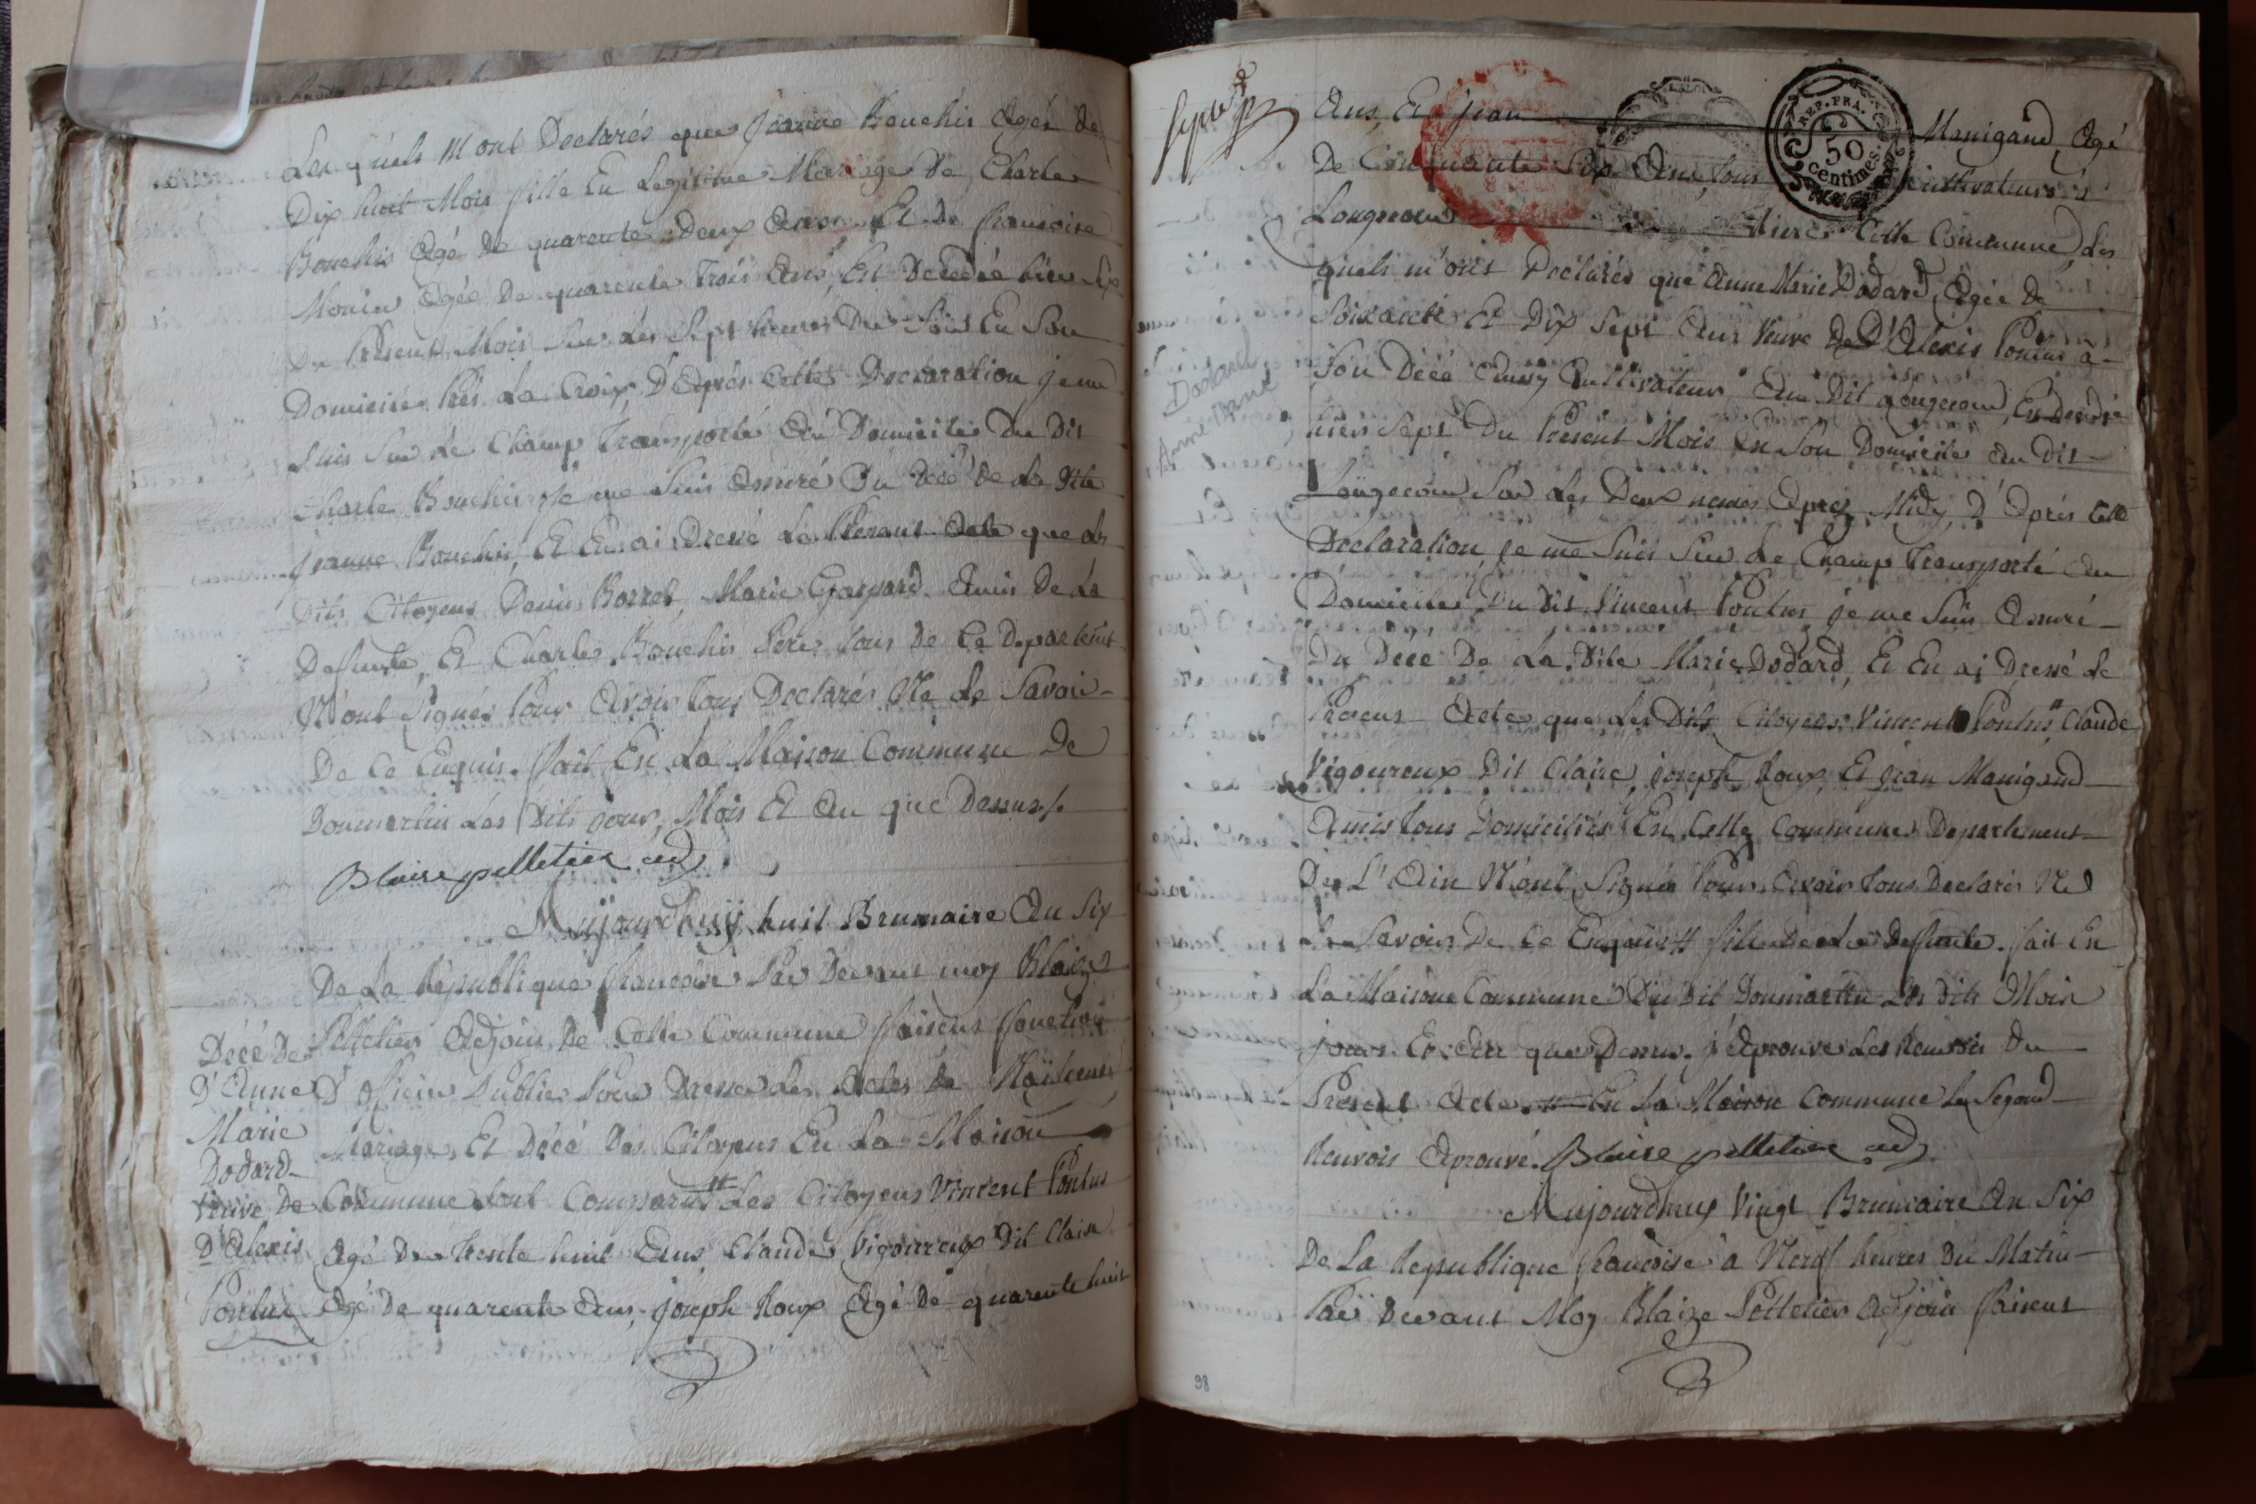 Les quels mont Declarés que jeanne Bouchis Agés de
Dix huit Mois fille En Legitime Mariage De Charle
Bouchis Agé De quarente Deux Ans Et De francoise
Monin Agée De quarente Trois Ans, Est Decedée hier Six
Du Present Mois Sur Les Sept heures Du Soir En Son
Domicile Pres La Croix, D'Aprés Cette Declaration je me
Suis Sur Le Champ Transporté Au Domicile Du Dit
Charle Bouchis je me Suis Assuré Du Décé De La Dite
jeanne Bouchis, Et En ai Dressé Le Présent Acte que Les
Dits Citoyens Denis Borret, Marie Gaspard Amis De La
Defunte, Et Charles Bouchis Pere tous De Ce Departemt
N'ont Signés Pour Avoir tous Declarés Ne Le Savoir
De Ce Enquis. fait En La Maison Commune De
Dommartin Les Dits jour, Mois Et An que Dessus /.
Blaise pelletier adj
Aujourdhuy huit Brumaire An Six
De La Republique francoise Par Devant moy Blaize
Pelletier Adjoin De Cette Commune faisens fonction
D'officier Publier Pour Dresser Les Actes de Naissences
Mariage, Et Décé Des Citoyens En La Maison
Commune Sont Comparus Les Citoyens Vincent Pontus
Agé De Trente huit Ans, Claude Vigoureux Dit Claire
Agé De quarente Ans, joseph Roux Agé De quarente huit
Décé De
D'Anne
Marie
Dodard
Veuve De
D'Alexis
Pontus
Ans, Et jean Manigand, Agé
De Cinquante Six Ans, tous Cultivateurs à
Longecour Rierre Cette Commune, Les
quels m'onts Declarés que Anne Marie Dodard, Agée De
Soixante Et Dix Sept Ans Veuve De D'Alexis Pontus à
Son Décé Aussy Cultivateur Au Dit Longecour, Est decedée
hier Sept Du Present Mois En Son Domicile Au Dit
Longecour, Sur Les Deux heures Aprez Midy, D'Aprés Cette
Declaration, je me Suis Sur Le Champ Transporté Au
Domicile Du Dit Vincent Pontus je me Suis Assuré
Du Décé De La Dite Marie Dodard, Et En ai Dressé Le
Present Acte que Les Dits Citoyens Vincent Pontus Claude
Vigoureux Dit Claire, joseph Roux, Et jean Manigand
Amis tous Domiciliés En Cette Commune Departement
De L'Ain N'ont Signés Pour Avoir tous Declarés Ne
Le Savoir De Ce Enquis fils De La Defunte. fait En
La Maisone Commune Du Dit Dommartin Les Dits Mois
jours Et An que Dessus. j'Aprouve Les Renvois Du
Present Acte. En La Maison Commune Le Segond
Renvois Aprouvé. Blaise pelletier adj
Aujourdhuy Vingt Brumaire An Six
De La Republique francoise à Neuf heures Du Matin
Par Devant Moy Blaize Pelletier Adjoin faisens
Dodard
Anne Marie
REP. FRA.
50
centimes.
98